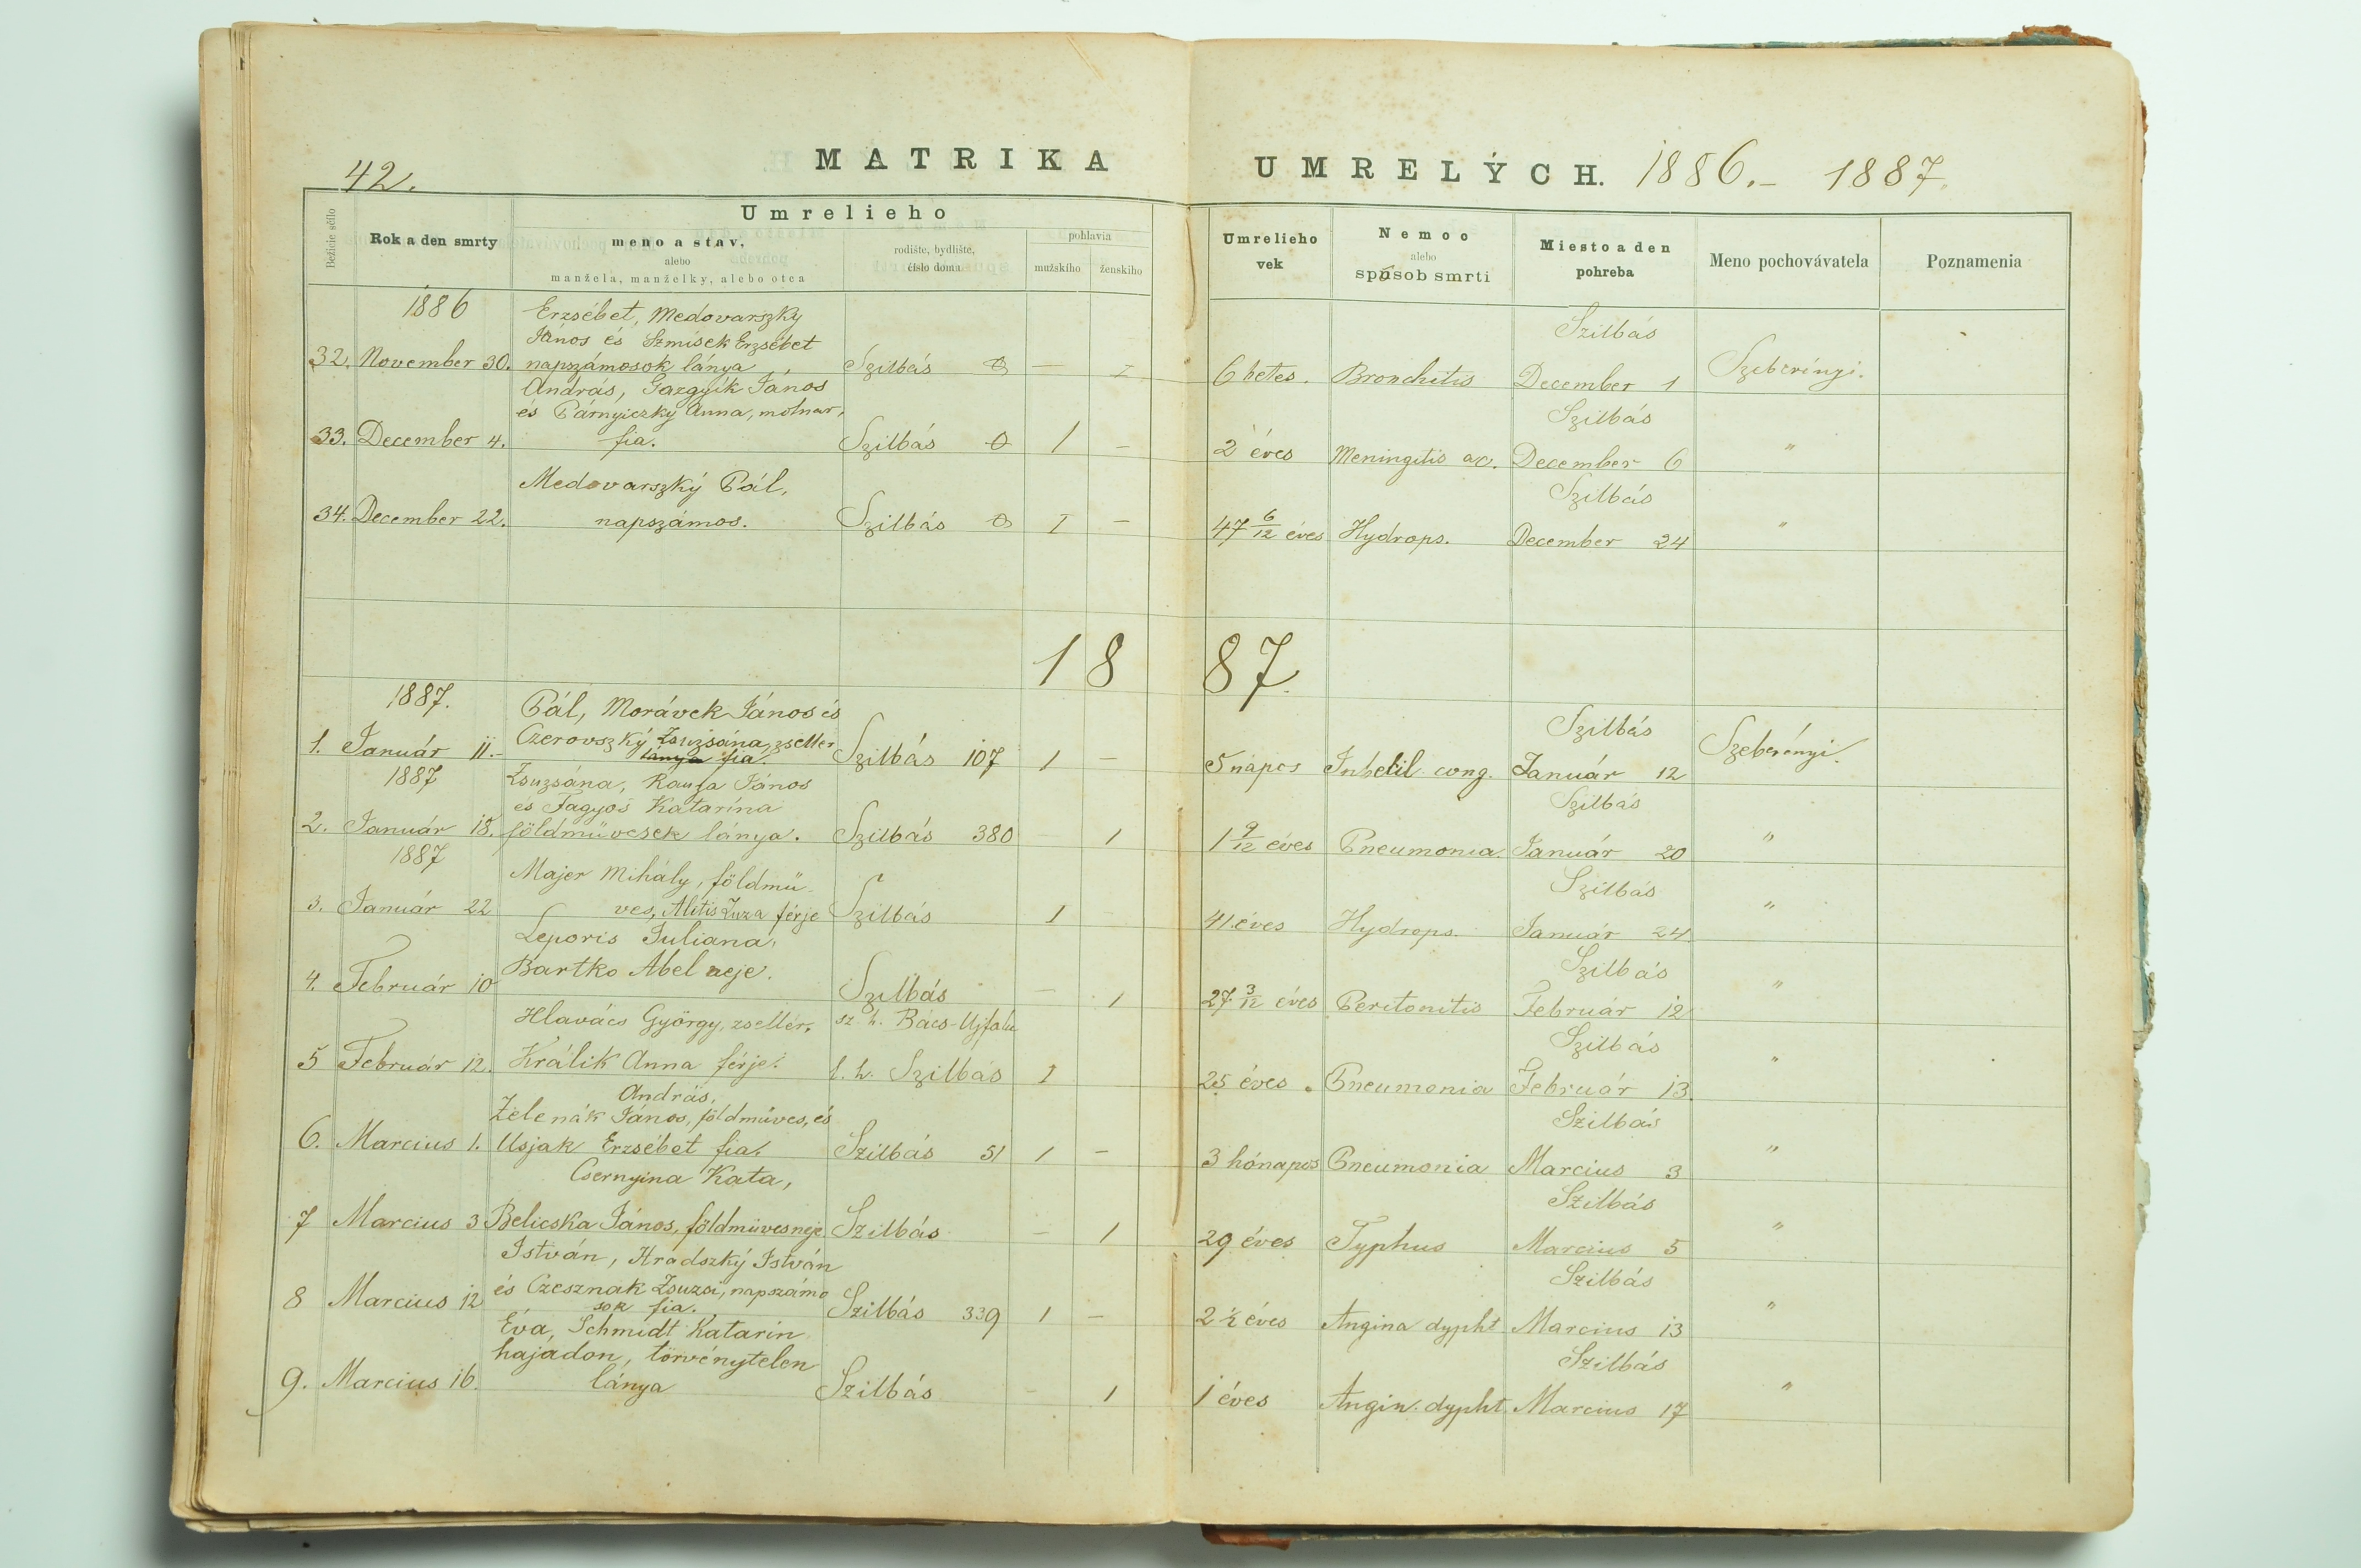 42.
MATRIKA UMRELÝCH. 1886.– 1887.
Bežicie sčílo
Rok a den smrty
Umrelieho
meno a stav,
alebo
manžela, manželky, alebo otca
rodište, bydlište,
číslo domu
pohlavia
mužského
ženskiho
Umrelieho
vek
Nemoc
alebo
spûsob smrti
Miesto a den
pohreba
Meno pochovávatela
Poznamenia
1886
Erzsébet, Medovarszky
János és Szmisek Erzsébet
32. November 30. napszámosok lánya Szilbás 0 — 1
6 hetes. Bronchitis
Szilbás
December 1
Szeberényi.
András, Gazgyík János
és Párnyiczky Anna, molnar,
33. December 4. fia. Szilbás 0 1 —
2 éves Meningitis ac.
Szilbás
December 6 "
Medovarszký Pál,
34. December 22. napszámos. Szilbás 0 1 —
47 6/12 éves Hydrops.
Szilbás
December 24 "
1887.
1887.
Pál, Morávek János és
Czerovszký Zsuzsána, zsellér
1. Január 11.– lánya fia. Szilbás 107 1 —
5 napos Inbecil. cong.
Szilbás
Január 12
Szeberényi.
1887
Zsuzsána, János
és Fagyos Katarína
2. Január 18. földművesek lánya. Szilbás 380 1
1 9/12 éves Pneumonia.
Szilbás
Január 20 "
1887
Majer Mihály, földmű-
3. Január 22 ves, Zuza férje Szilbás 1
41. éves Hydrops.
Szilbás
Január 24 "
Leporis Juliana,
Bartko Abel neje.
4. Február 10 Szilbás — 1
27. 3/12 éves Peritonitis
Szilbás
Február 12 "
Hlavács György, zsellér, sz. h. Bács-Ujfalu
5 Február 12. Králik Anna férje. l. h. Szilbás 1
25 éves. Pneumonia
Szilbás
Február 13. "
András,
Zelenák János, földműves, és
6. Marcius 1. Usjak Erzsébet fia. Szilbás 51 1 —
3 hónapos Pneumonia
Szilbás
Marcius 3 "
Csernyina Kata,
7 Marcius 3 Belicska János, földműves neje Szilbás — 1
29 éves Typhus
Szilbás
Marcius 5 "
István, Hradszký István
és Czesznak Zsuzsi, napszámo
8 Marcius 12 sok fia. Szilbás 339 1 —
2 1/2 éves Angina dypht
Szilbás
Marcius 13 "
Éva, Schmidt Katarin
hajadon, törvénytelen
9. Marcius 16. lánya Szilbás — 1
1 éves Angin. dypht
Szilbás
Marcius 17 "